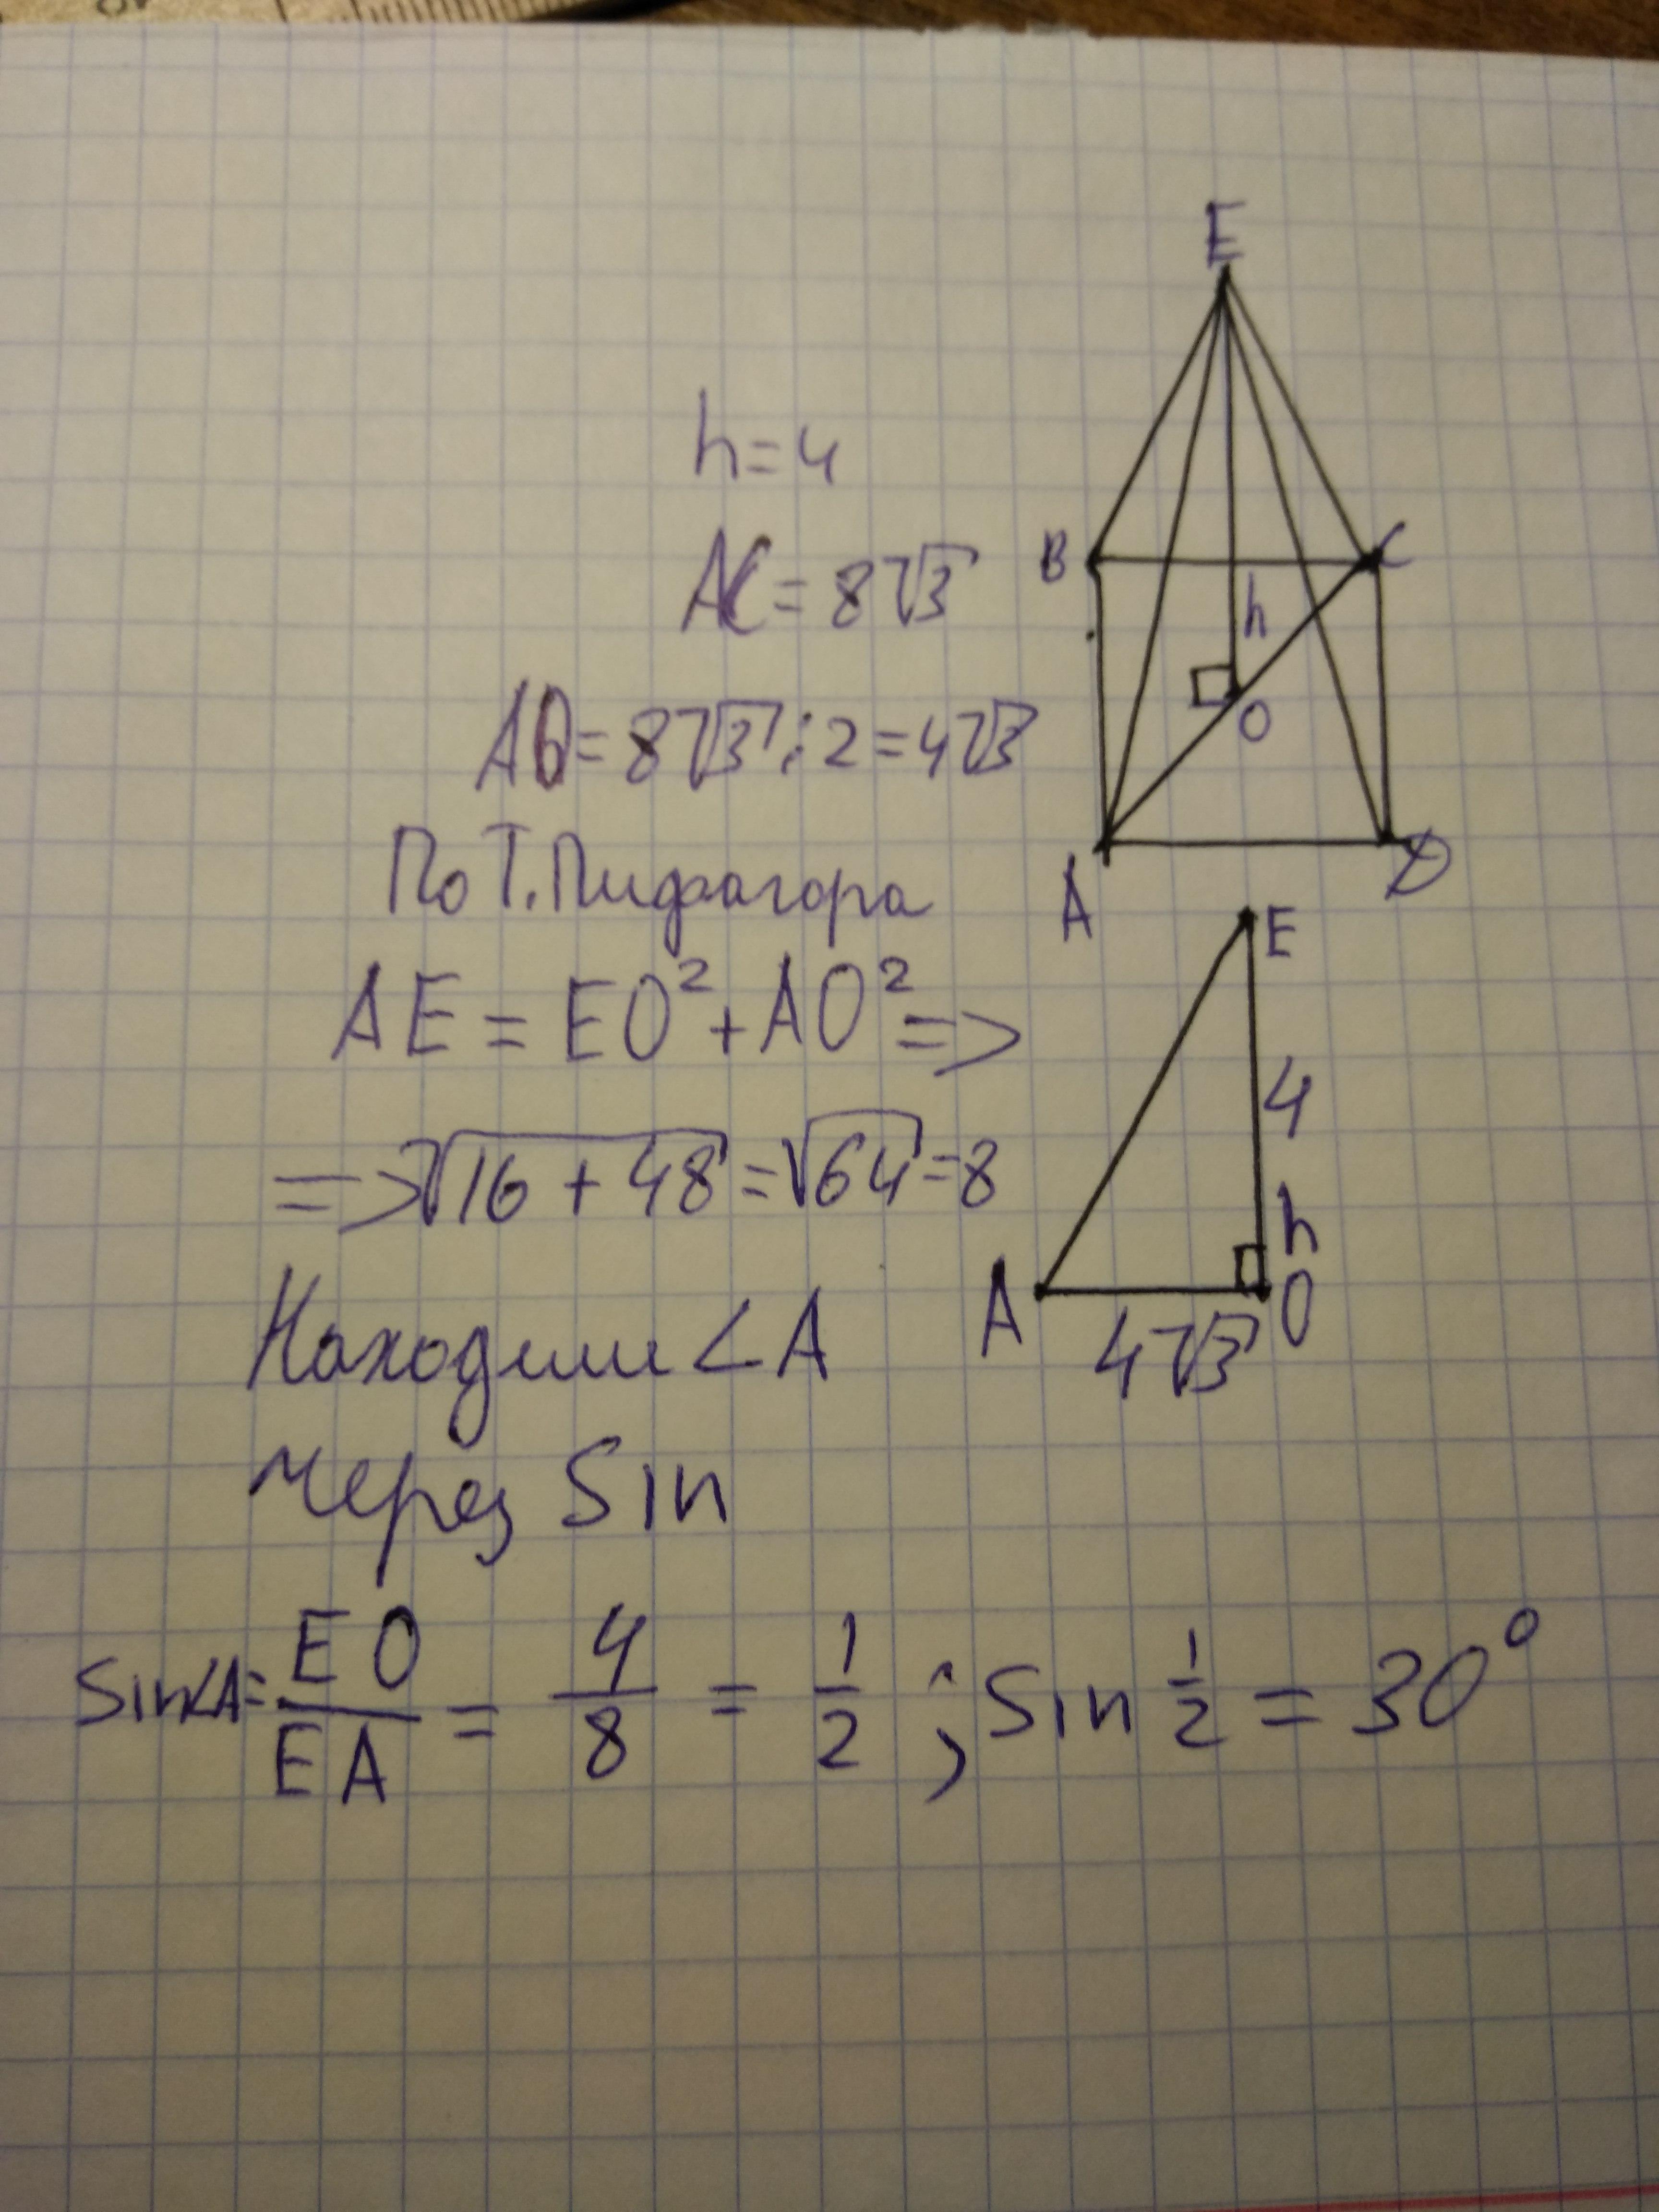 E
h=4
B
C
AC = 8√3
h
O
AO = 8√3 : 2 = 4√3
По Т. Пифагора
A
D
E
AE = EO² + AO² =>
4
=> √16 + 48 = √64 = 8
h
A
O
4√3
Находим ∠A
через Sin
Sin∠A = EO/EA = 4/8 = 1/2 ; Sin 1/2 = 30°